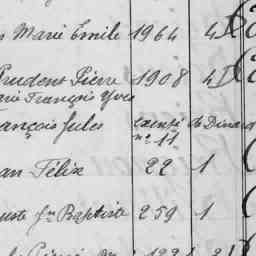 Marie Emile 1964 4
Prudent Pierre 1908 4
Marie François Yves
François Jules exempté de Dinard
n° 11
an Félix 22 1
uste Jn Baptiste 259 1